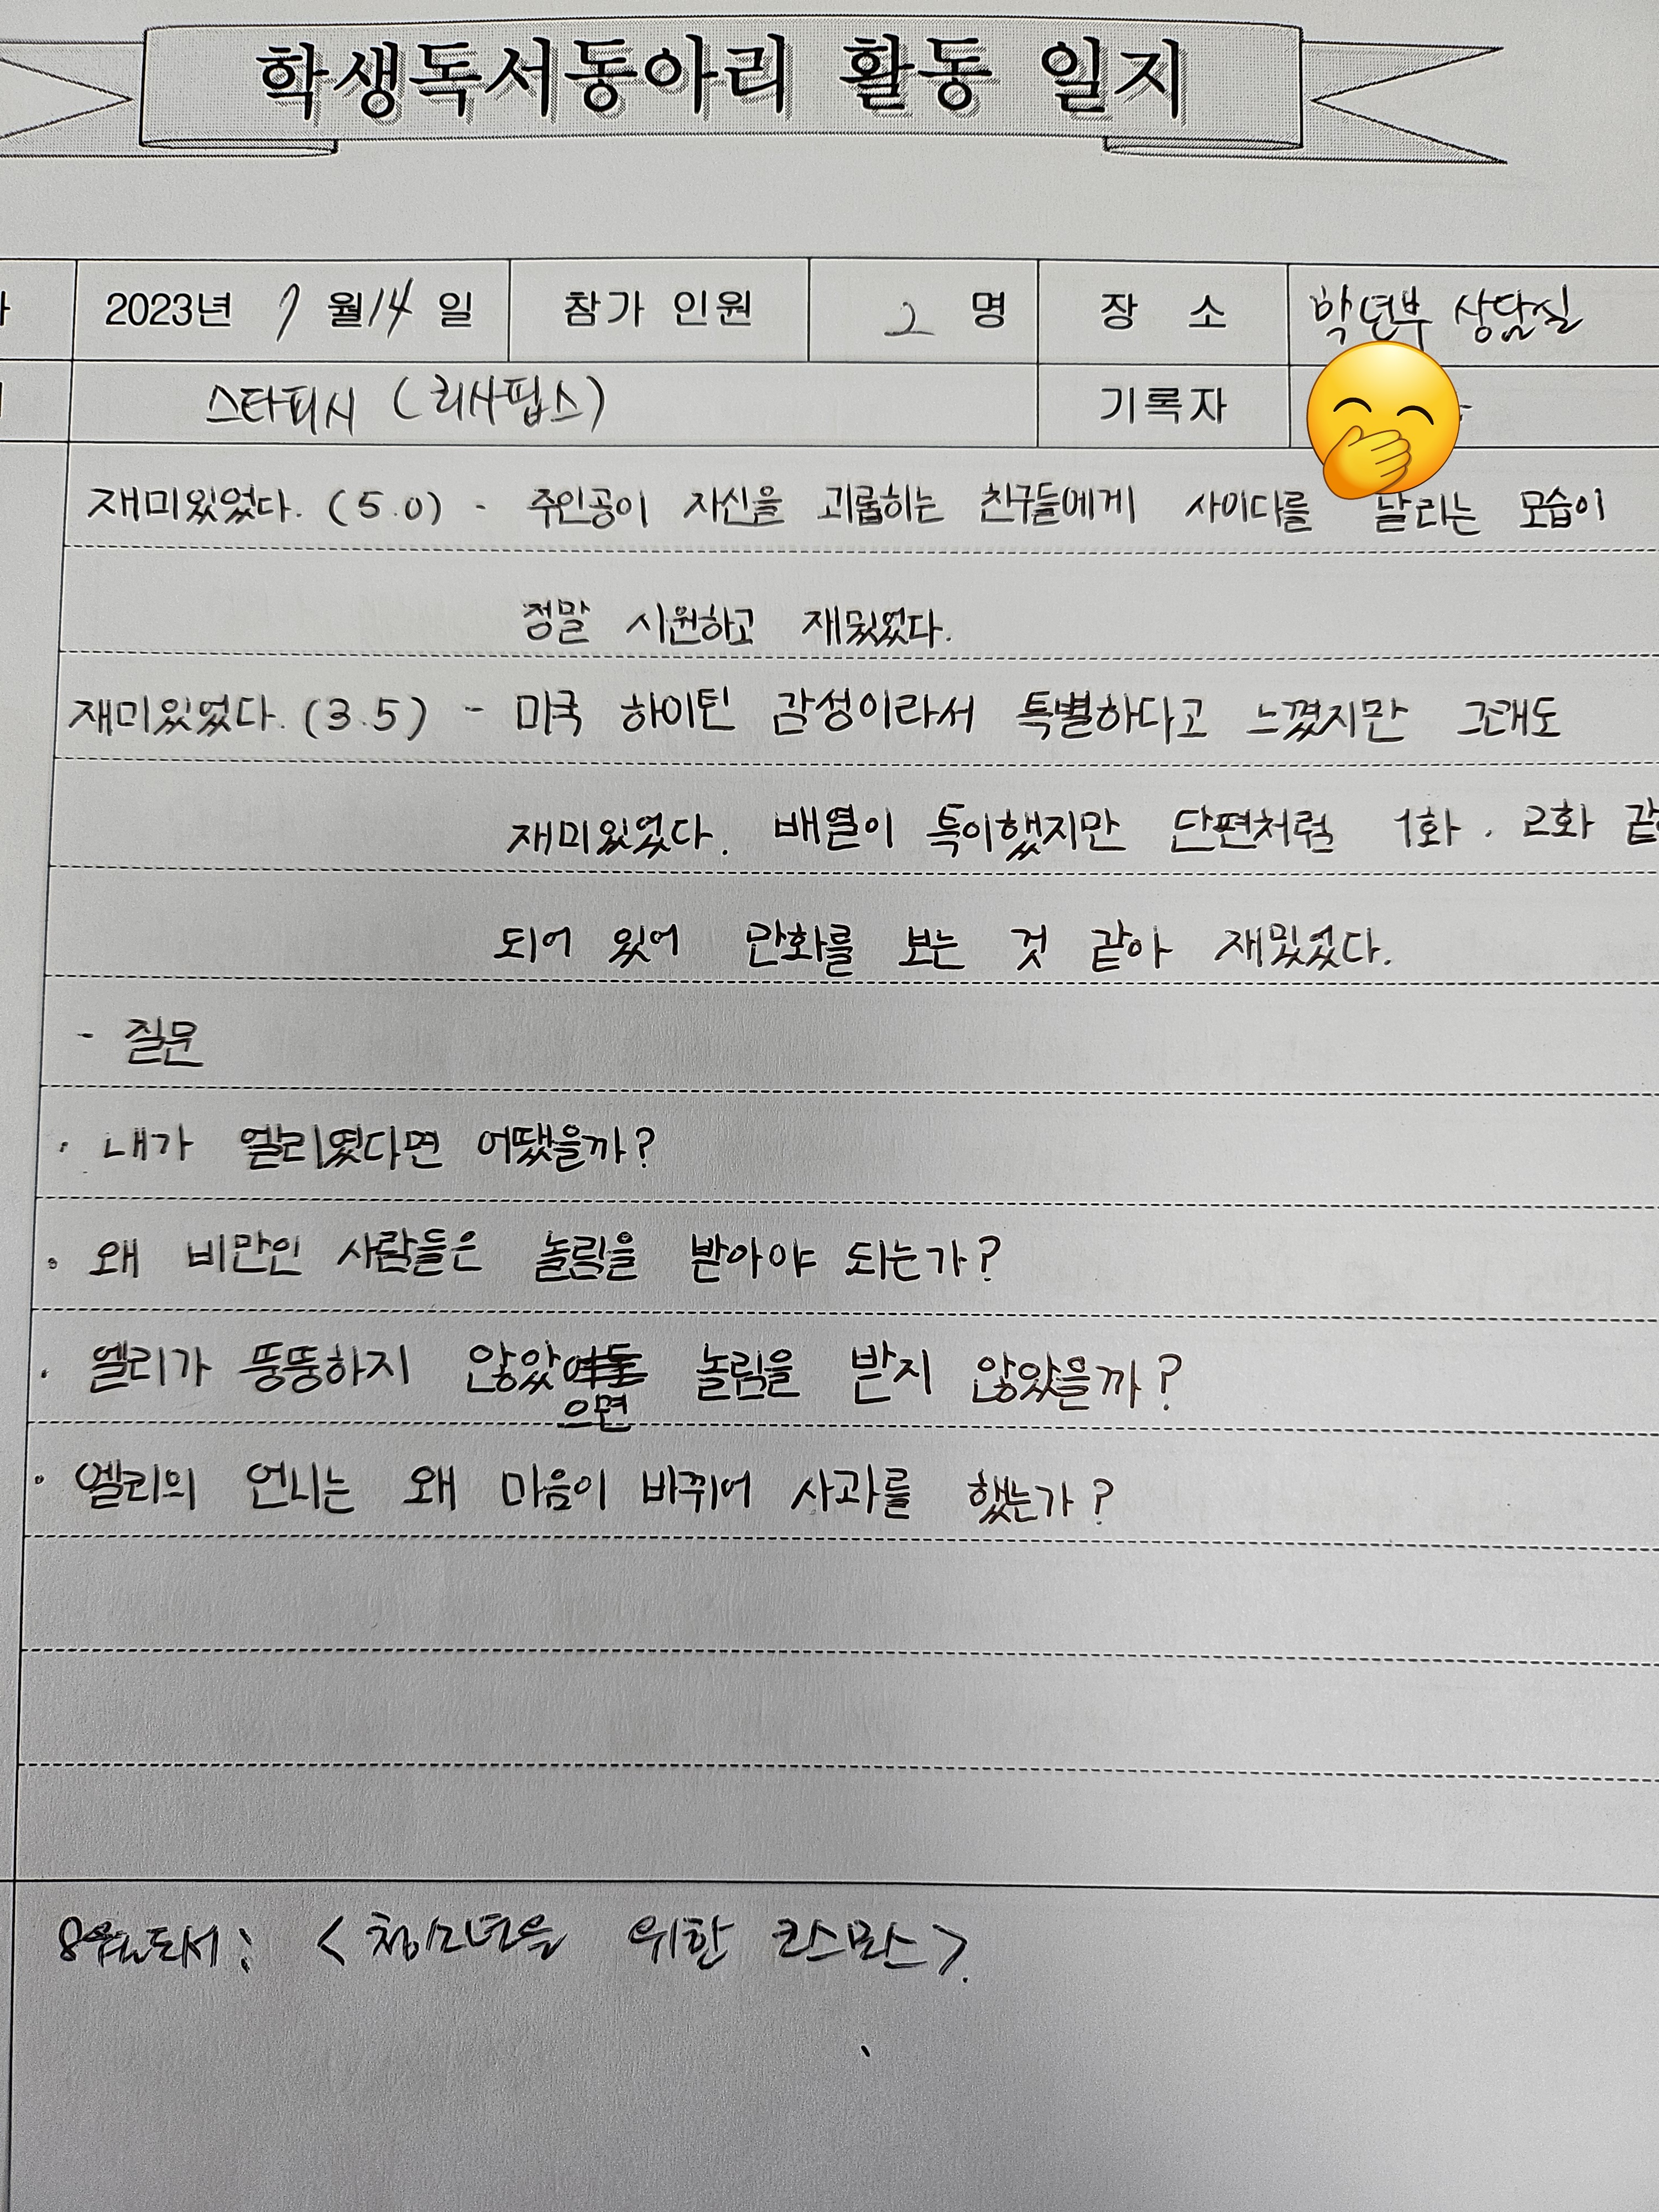 학생독서동아리 활동 일지
2023년 7월 14일 참가 인원 2 명 장 소 학년부 상담실
스타피시 (리사핍스) 기록자
재미있었다. (5.0) - 주인공이 자신을 괴롭히는 친구들에게 사이다를 날리는 모습이
정말 시원하고 재밌었다.
재미있었다. (3.5) - 미국 하이틴 감성이라서 특별하다고 느꼈지만 그래도
재미있었다. 배열이 특이했지만 단편처럼 1화, 2화
되어 있어 만화를 보는 것 같아 재밌었다.
- 질문
· 내가 엘리였다면 어땠을까?
· 왜 비만인 사람들은 놀림을 받아야 되는가?
· 엘리가 뚱뚱하지 않았으면 놀림을 받지 않았을까?
· 엘리의 언니는 왜 마음이 바뀌어 사과를 했는가?
8월도서: <청소년을 위한 코스모스>.